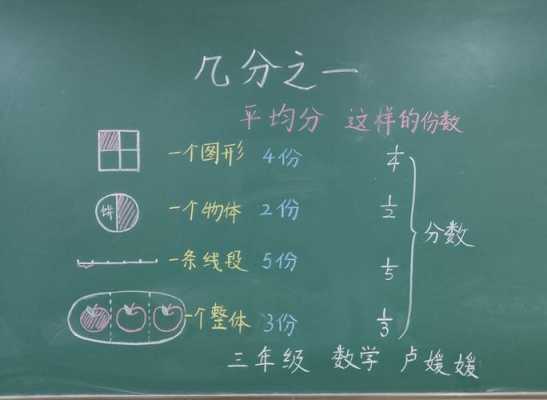 几分之一
平均分 这样的份数
一个图形 4份 1/4
饼 一个物体 2份 1/2
一条线段 5份 1/5
一个整体 3份 1/3
分数
三年级 数学 卢媛媛